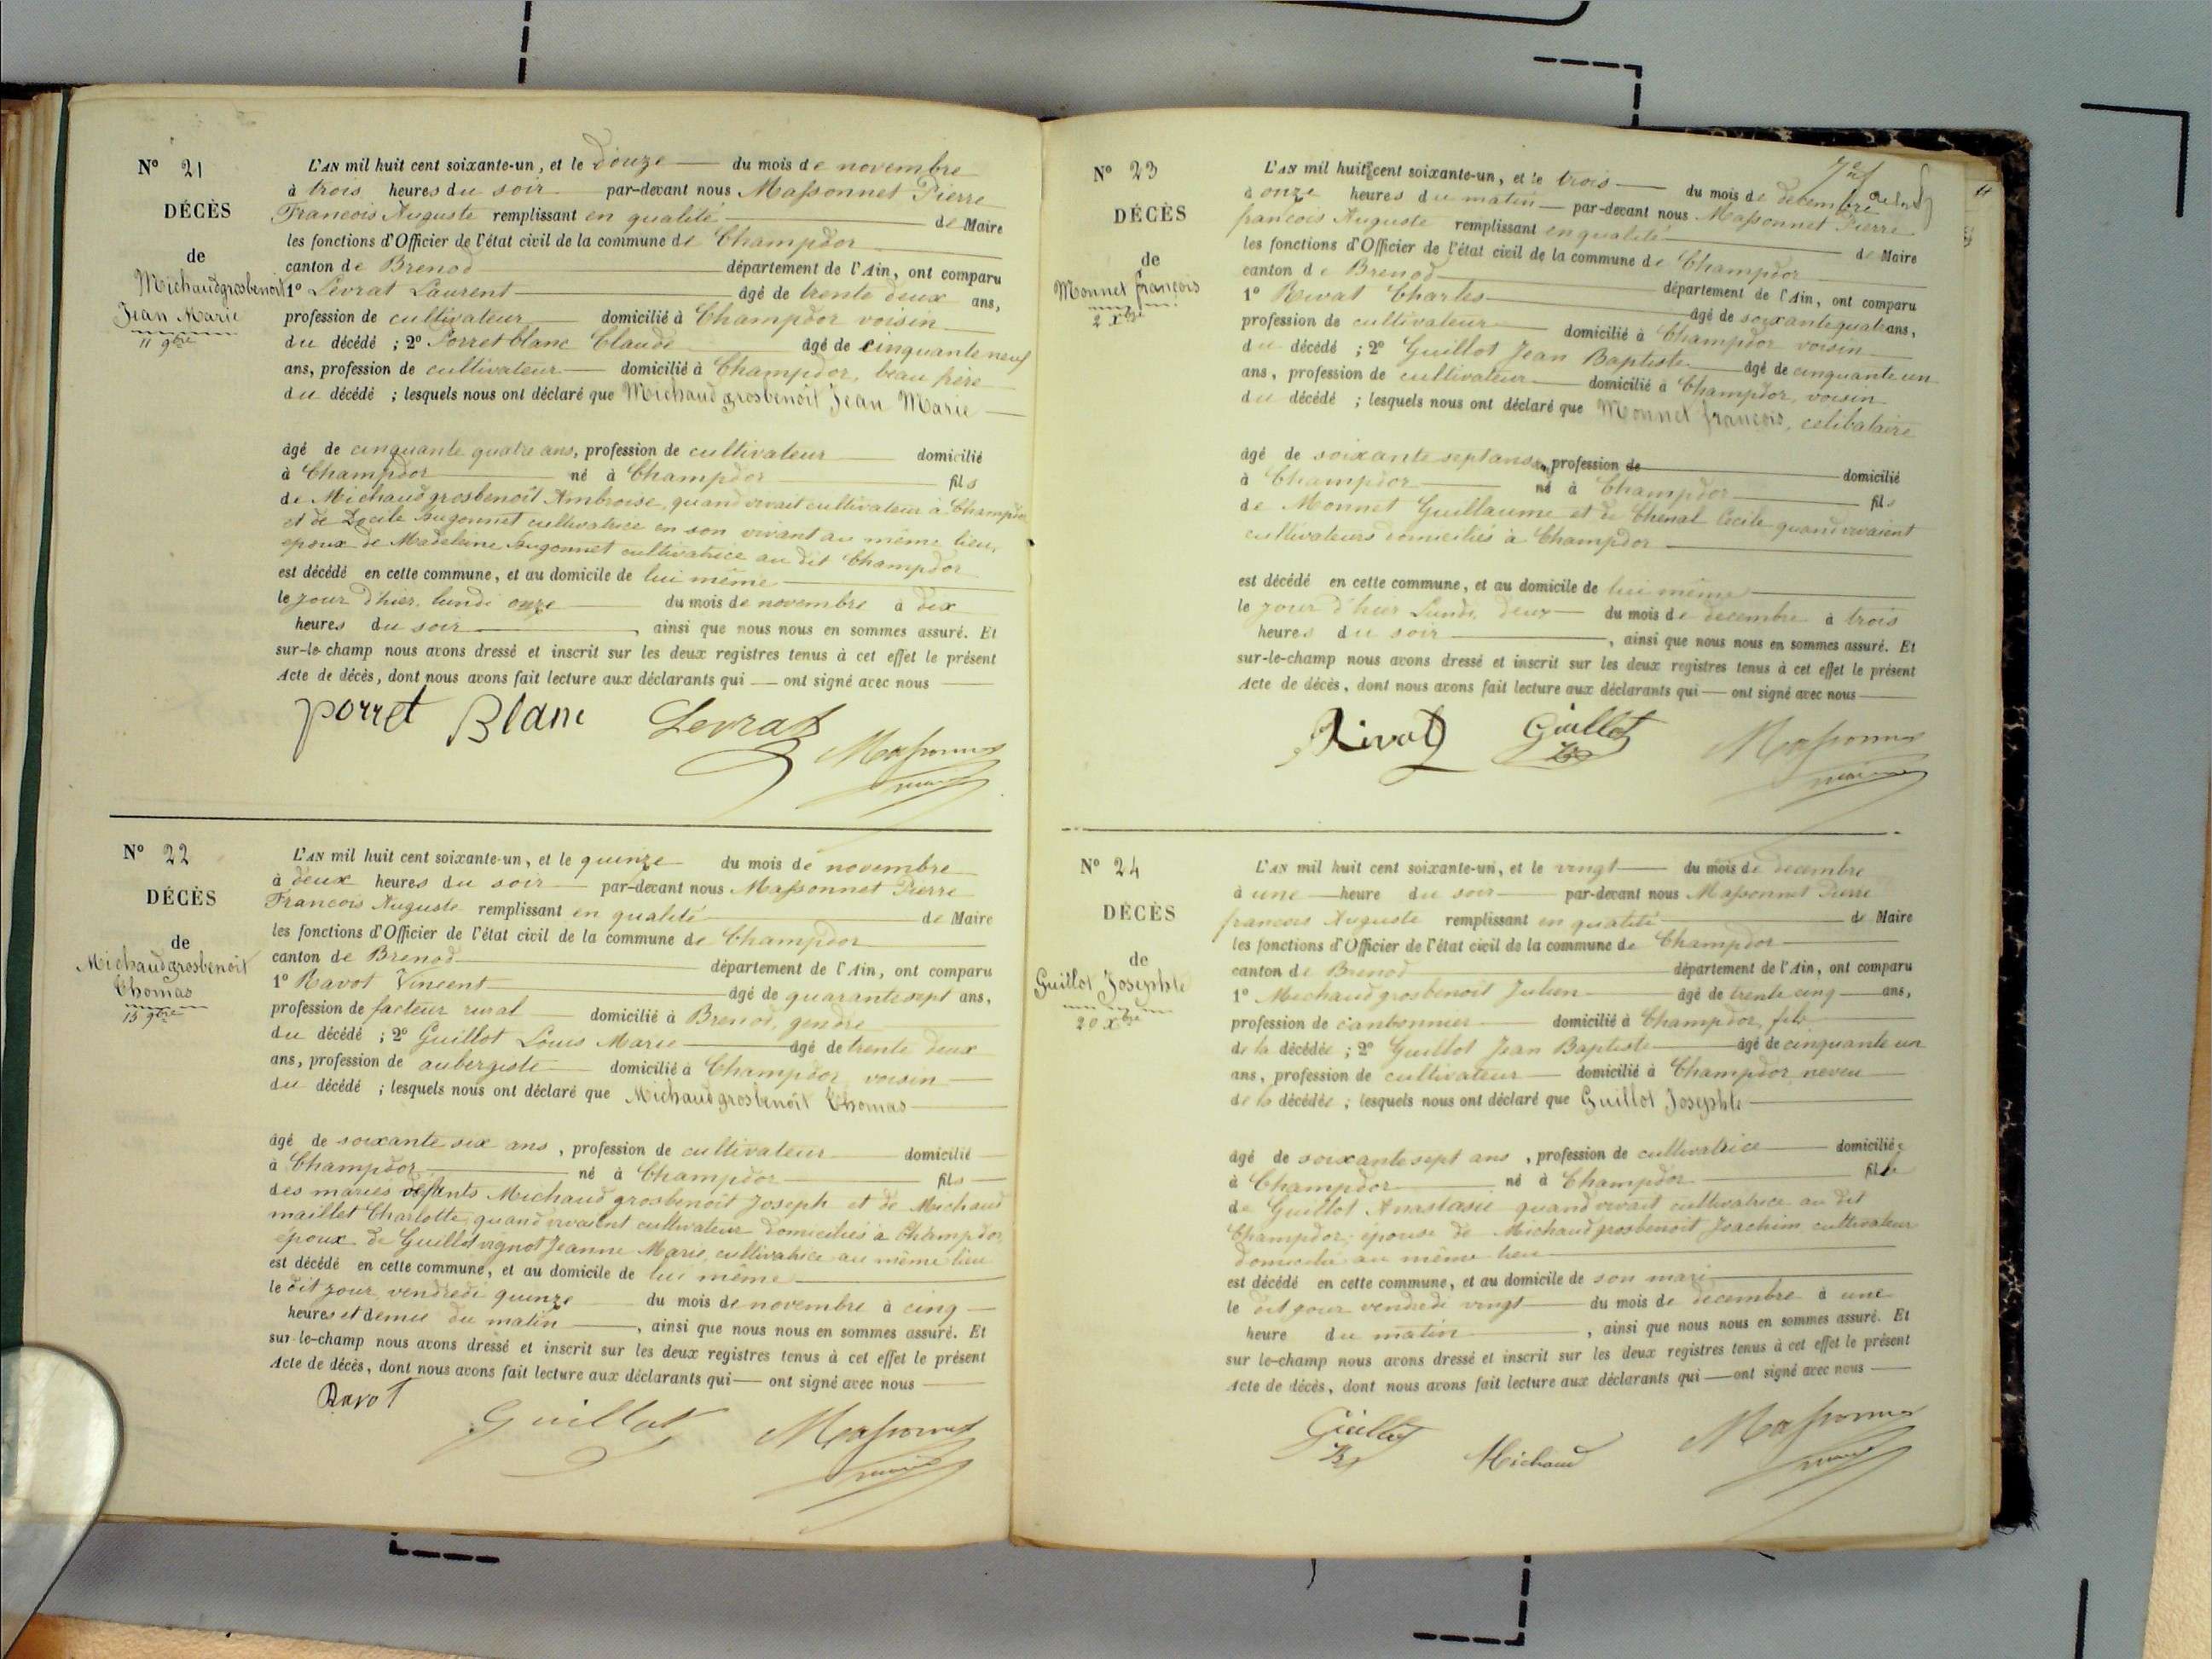 N° 21
DÉCÈS
de
Michaudgrosbenoit
Jean Marie
11 9bre
L'AN mil huit cent soixante-un, et le douze du mois de novembre
à trois heures du soir par-devant nous Massonnet Pierre
François Auguste remplissant en qualité de Maire
les fonctions d'Officier de l'état civil de la commune de Champdor
canton de Brenod département de l'Ain, ont comparu
1° Levrat Laurent âgé de trente deux ans,
profession de cultivateur domicilié à Champdor voisin
du décédé ; 2° Porret blanc Claude âgé de cinquante neuf
ans, profession de cultivateur domicilié à Champdor, beau frère
du décédé ; lesquels nous ont déclaré que Michaud grosbenoit Jean Marie
âgé de cinquante quatre ans, profession de cultivateur domicilié
à Champdor né à Champdor fils
de Michaud grosbenoît Ambroise, quand vivait cultivateur à Champdor
et de Sugonnet cultivatrice en son vivant au même lieu,
époux de Madeleine Sugonnet cultivatrice au dit Champdor
est décédé en cette commune, et au domicile de lui même
le jour d'hier, lundi onze du mois de novembre à dix
heures du soir, ainsi que nous nous en sommes assuré. Et
sur-le-champ nous avons dressé et inscrit sur les deux registres tenus à cet effet le présent
Acte de décès, dont nous avons fait lecture aux déclarants qui ont signé avec nous
porret Blanc Levrat
Massonnet
maire
N° 22
DÉCÈS
de
Michaudgrosbenoit
Thomas
15 9bre
L'AN mil huit cent soixante-un, et le quinze du mois de novembre
à deux heures du soir par-devant nous Massonnet Pierre
François Auguste remplissant en qualité de Maire
les fonctions d'Officier de l'état civil de la commune de Champdor
canton de Brenod département de l'Ain, ont comparu
1° Ravot Vincent âgé de quarante sept ans,
profession de facteur rural domicilié à Brenod, gendre
du décédé ; 2° Guillot Louis Marie âgé de trente deux
ans, profession de aubergiste domicilié à Champdor voisin
du décédé ; lesquels nous ont déclaré que Michaud grosbenoît Thomas
âgé de soixante six ans, profession de cultivateur domicilié
à Champdor né à Champdor fils
des mariés défunts Michaud grosbenoît Joseph et de Michaud
maillet Charlotte, quand vivaient cultivateur domiciliés à Champdor,
époux de Guillot vignot Jeanne Marie, cultivatrice au même lieu
est décédé en cette commune, et au domicile de lui même
le dit jour, vendredi quinze du mois de novembre à cinq
heures et demie du matin, ainsi que nous nous en sommes assuré. Et
sur-le-champ nous avons dressé et inscrit sur les deux registres tenus à cet effet le présent
Acte de décès, dont nous avons fait lecture aux déclarants qui ont signé avec nous
Ravot
Guillot Massonnet
maire
11
N° 23
DÉCÈS
de
Monnet françois
2 Xbre
L'AN mil huit cent soixante-un, et le trois du mois de décembre
à onze heures du matin par-devant nous Massonnet Pierre
françois Auguste remplissant en qualité de Maire
les fonctions d'Officier de l'état civil de la commune de Champdor
canton de Brenod département de l'Ain, ont comparu
1° Rivat Charles âgé de soixante quatre ans,
profession de cultivateur domicilié à Champdor voisin
du décédé ; 2° Guillot Jean Baptiste âgé de cinquante un
ans, profession de cultivateur domicilié à Champdor, voisin
du décédé ; lesquels nous ont déclaré que Monnet françois, célibataire
âgé de soixante sept ans, profession de domicilié
à Champdor né à Champdor fils
de Monnet Guillaume et de Chenal Cécile quand vivaient
cultivateurs domiciliés à Champdor
est décédé en cette commune, et au domicile de lui même
le jour d'hier Lundi, deux du mois de décembre à trois
heures du soir, ainsi que nous nous en sommes assuré. Et
sur-le-champ nous avons dressé et inscrit sur les deux registres tenus à cet effet le présent
Acte de décès, dont nous avons fait lecture aux déclarants qui ont signé avec nous
Rivat Guillot Massonnet
maire
N° 24
DÉCÈS
de
Guillot Josephte
20 Xbre
L'AN mil huit cent soixante-un, et le vingt du mois de décembre
à une heure du soir par-devant nous Massonnet Pierre
françois Auguste remplissant en qualité de Maire
les fonctions d'Officier de l'état civil de la commune de Champdor
canton de Brenod département de l'Ain, ont comparu
1° Michaud grosbenoit Julien âgé de trente cinq ans,
profession de cantonnier domicilié à Champdor, fils
de la décédée ; 2° Guillot Jean Baptiste âgé de cinquante un
ans, profession de cultivateur domicilié à Champdor neveu
de la décédée ; lesquels nous ont déclaré que Guillot Josephte
âgé de soixante sept ans, profession de cultivatrice domiciliée
à Champdor né à Champdor fille
de Guillot Anastasie quand vivait cultivatrice au dit
Champdor, épouse de Michaud grosbenoit Joachim cultivateur
domicilié au même lieu
est décédé en cette commune, et au domicile de son mari
le dit jour vendredi vingt du mois de décembre à une
heure du matin, ainsi que nous nous en sommes assuré. Et
sur le-champ nous avons dressé et inscrit sur les deux registres tenus à cet effet le présent
Acte de décès, dont nous avons fait lecture aux déclarants qui ont signé avec nous
Guillot Michaud Massonnet
maire